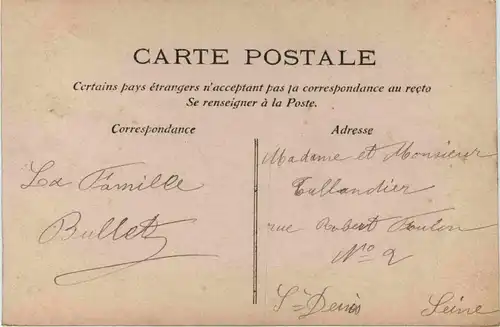 CARTE POSTALE
Certains pays étrangers n'acceptant pas la correspondance au recto
Se renseigner à la Poste.
Correspondance
La Famille
Bullet
Adresse
Madame et Monsieur
Tallandier
rue Robert Foulon
No 2
St Denis Seine